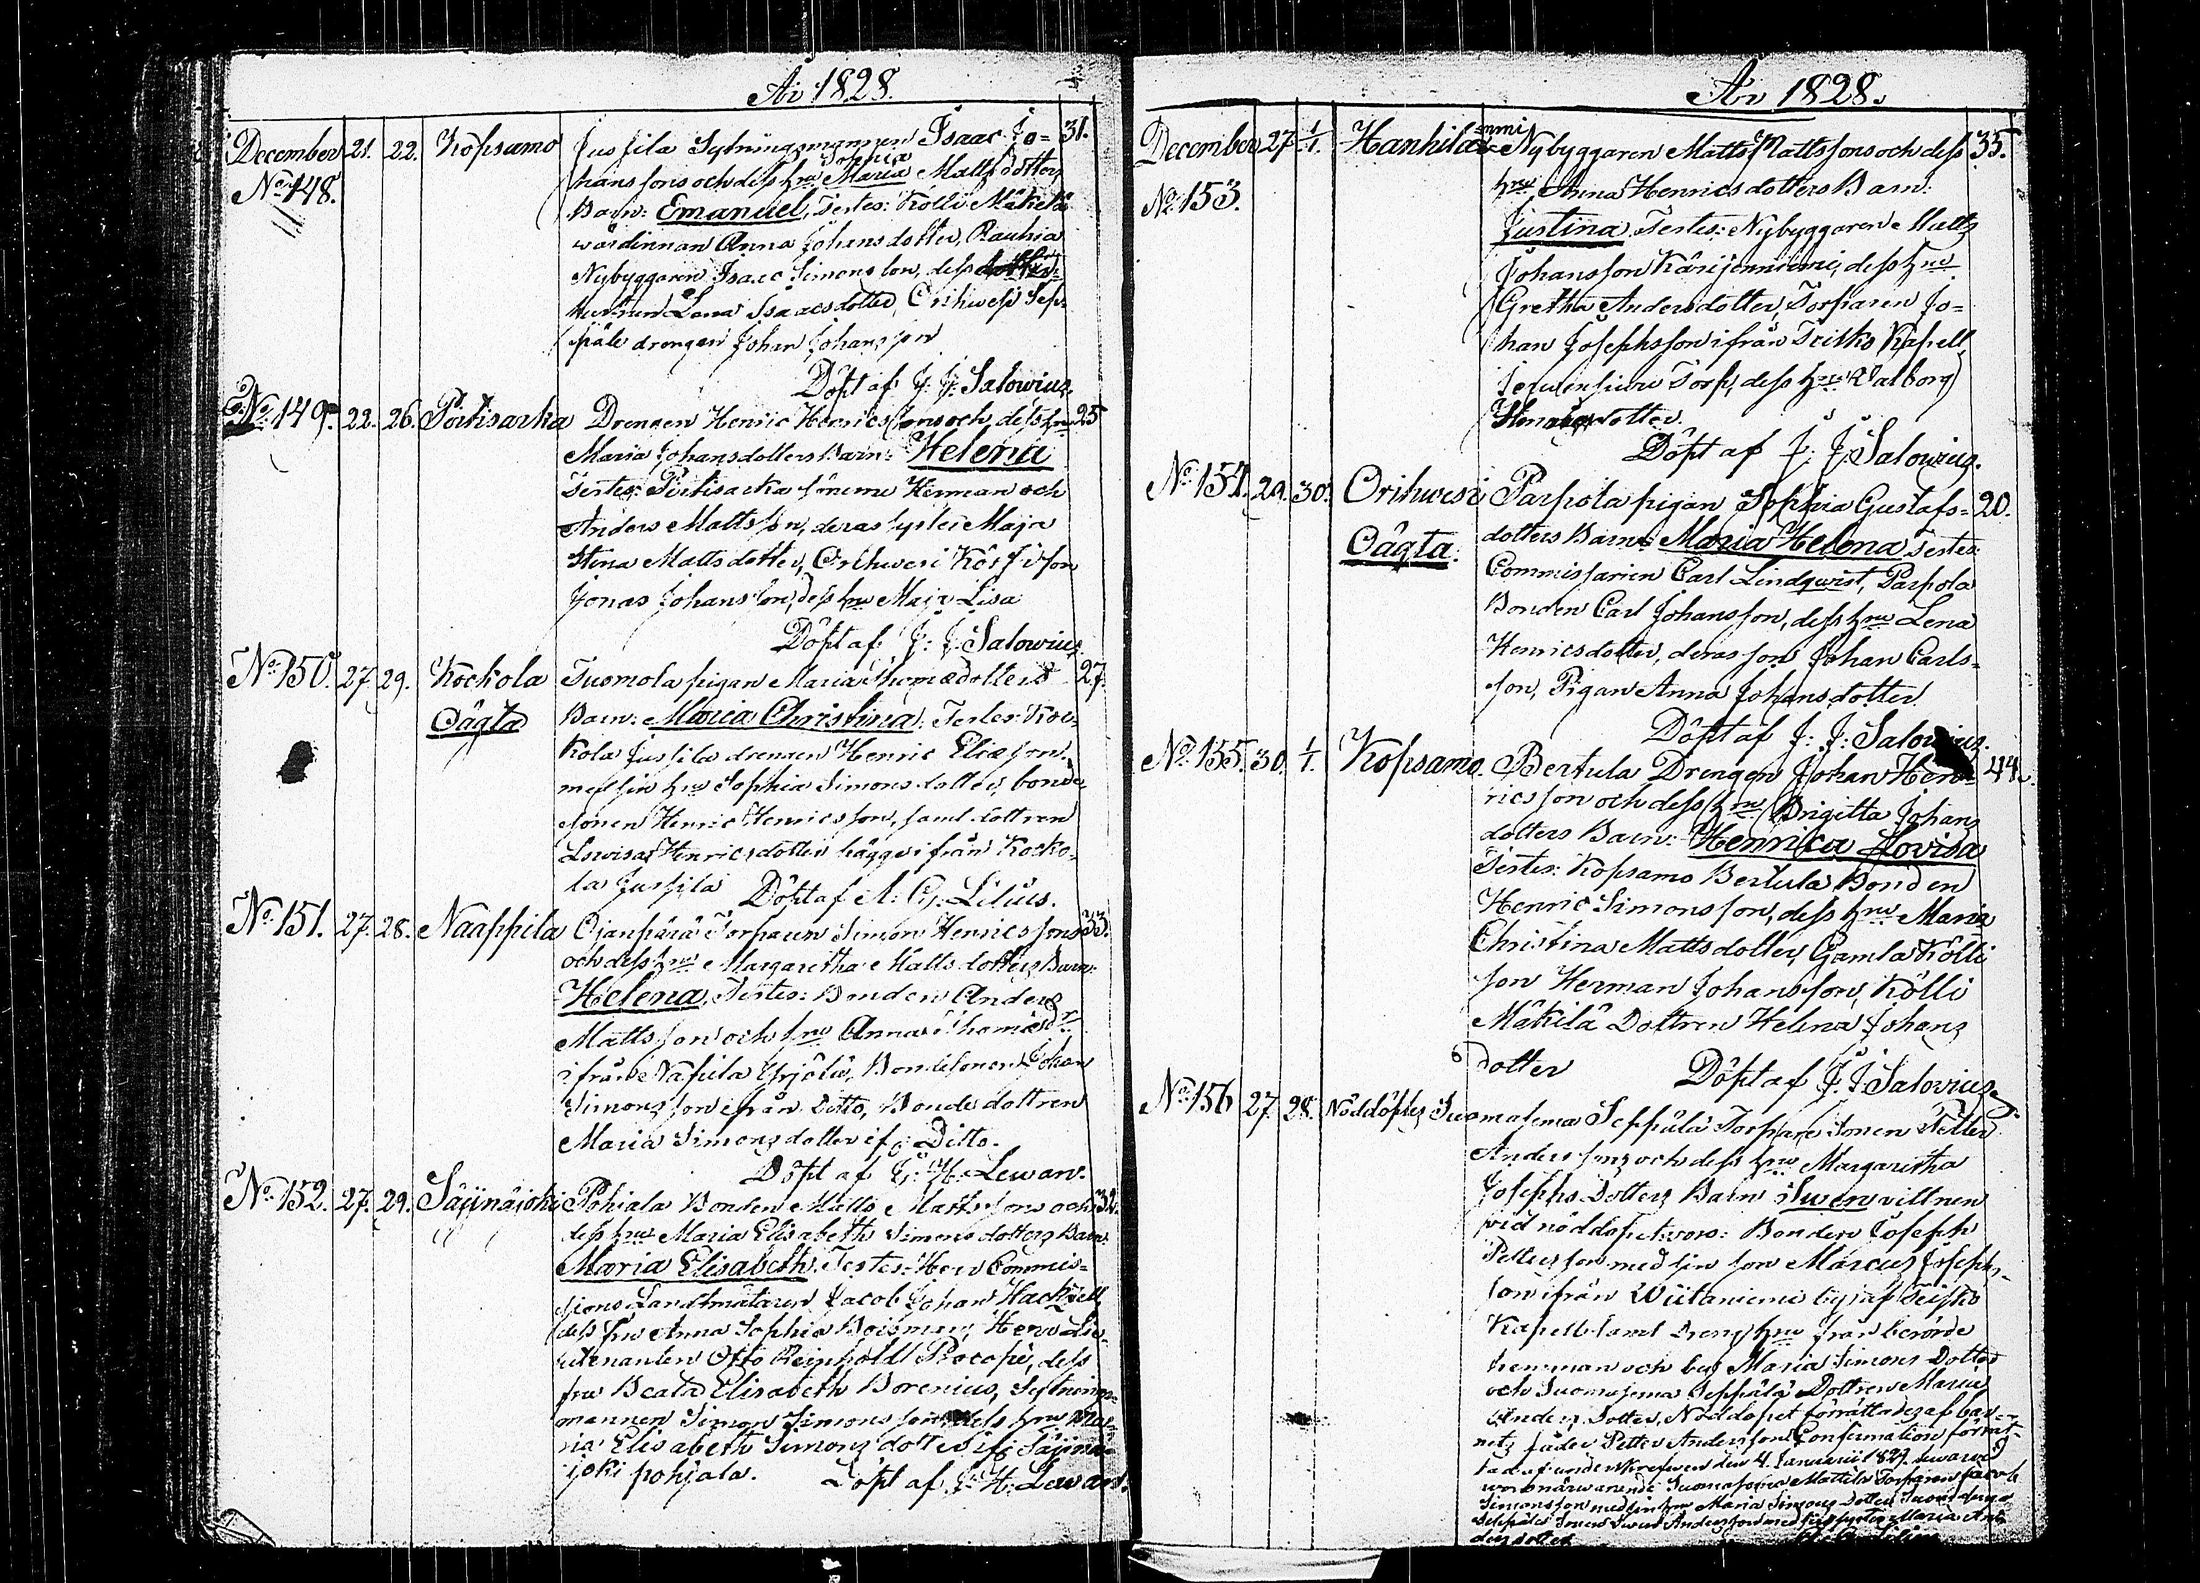 År 1828.
December 21. 22. Kopsamo Jussila Sytningsmannen Isaac Jo= 31.
No 148. hans sons och dess hru Sophia Maria Matts dotter
Barn: Emanuel, Testes: Kölli Mäkelä
wärdinnan Anna Johansdotter, Rauhia
Nybyggaren Isaac Simonsson, dess
hustru Lena Isaacsdotter, Orihwesi Sep-
pälä drengen Johan Johansson
Döpt af J: J: Salovius.
No 149. 22. 26. Pörtisarka Drengen Henric Henricssons och dess hru 25
Maria Johansdotters Barn: Helena
Testes: Pörtisarka sönerne Herman och
Anders Mattsson, deras syster Maja
Stina Mattsdotter, Orihwesi
Jonas Johansson, dess hru Maja Lisa
Döpt af J: J: Salovius
No 150. 27. 29. Kockola Tuomola pigan Maria Thomædotters 27.
Oägta Barn: Maria Christina. Testes: Koc-
kola Jussila drengen Henric Eliæson,
med sin hru Sophia Simonsdotter, bonde
sonen Henric Henricsson, samt dottren
Lovisa Henricsdotter bägge ifrån Kocko-
la Jussila Döpt af A: G: Lilius.
No 151. 27. 28. Naappila Ojanpärä Torparen Simon Henricssons 33.
och dess hru Margaretha Mattsdotters Barn:
Helena. Testes: Bonden Anders
Mattsson och hru Anna Thomæ dr
ifrån Yrjölä, Bondesonen Johan
Simonsson ifrån Ditto, Bonde dottren
Maria Simonsdotter if: Ditto.
Döpt af J: H: Lewan.
No 152. 27. 29. Säijnäjoki Pohjala Bonden Matts Mattssons och 32.
dess hru Maria Elisabeth Simonsdotters Barn:
Maria Elisabeth. Testes: Herr Commis-
sions Landtmätaren Jacob Johan Hackzell
dess fru Anna Sophia Boisman, Herr Lie-
utenanten Otto Reinhold Procopé, dess
fru Beata Elisabeth Borenius, Sytnings-
mannen Simon Simonsson dess hru Ma-
ria Elisabeth Simonsdotter if: Säijnä-
joki pohjala. Döpt af J: H: Lewan.
År 1828.
December 27. 1/1. Hanhila nmi Nybyggaren Matts Mattssons och dess 35.
No 153. hru Anna Henricsdotters Barn:
Justina. Testes: Nybyggaren Matts
Johansson Kärijenniemi, dess hru
Gretha Andersdotter, Torparen Jo=
han Josephsson ifrån Teisko Kapell
Torp, dess hru Walborg
dotter.
Döpt af J: J: Salovius.
No 154. 29. 30. Orihwesi Parpola pigan Sophia Gustafs= 20.
Oägta. dotters Barn: Maria Helena Testes:
Commissarien Carl Lindqwist, Parpola
Bonden Carl Johansson, dess hru Lena
Henricsdotter, deras son Johan Carls=
son, Pigan Anna Johansdotter
Döpt af J: J: Salovius.
No 155. 30. 1/1. Kopsamo. Bertula Drengen Johan Hen= 44.
rics son och dess hru Brigitta Johans
dotters Barn: Henrica Lovisa
Testes: Kopsamo Bertula Bonden
Henric Simonsson, dess hru Maria
Christina Mattsdotter, Gamla Kölli
son Herman Johansson, Kölli
Mäkilä Dottren Helena Johans
dotter Döpt af J: J: Salovius.
No 156 27. 28. Nöddöptes Suomasema Seppälä Torpare Sonen Petter
Anderssons och dess hru Margaretha
Josephs Dotters Barn Swen vittnen
vid nöddopet woro: Bonden Joseph
Pettersson med sin son Marcus Josephs-
son ifrån Wiitaniemi by i af Teisko
Kapell samt Dreng hru från berörde
hemman och by Maria Simons Dotter
och Suomasema Seppälä Dottren Maria
Anders Dotter, Nöddopet förrättades af bar-
nets fader Petter Andersson, Confirmation förrät-
tad af underskrefwen den 4. Januarii 1829. hwarwid
woro närwarande Suomasema Mattila Torparen Jacob
Simonsson med sin hru Maria Simons Dotter Suomasema
Seppälä Sonen Swen Andersson med sin syster Maria An-
ders dotter A: G: Lilius